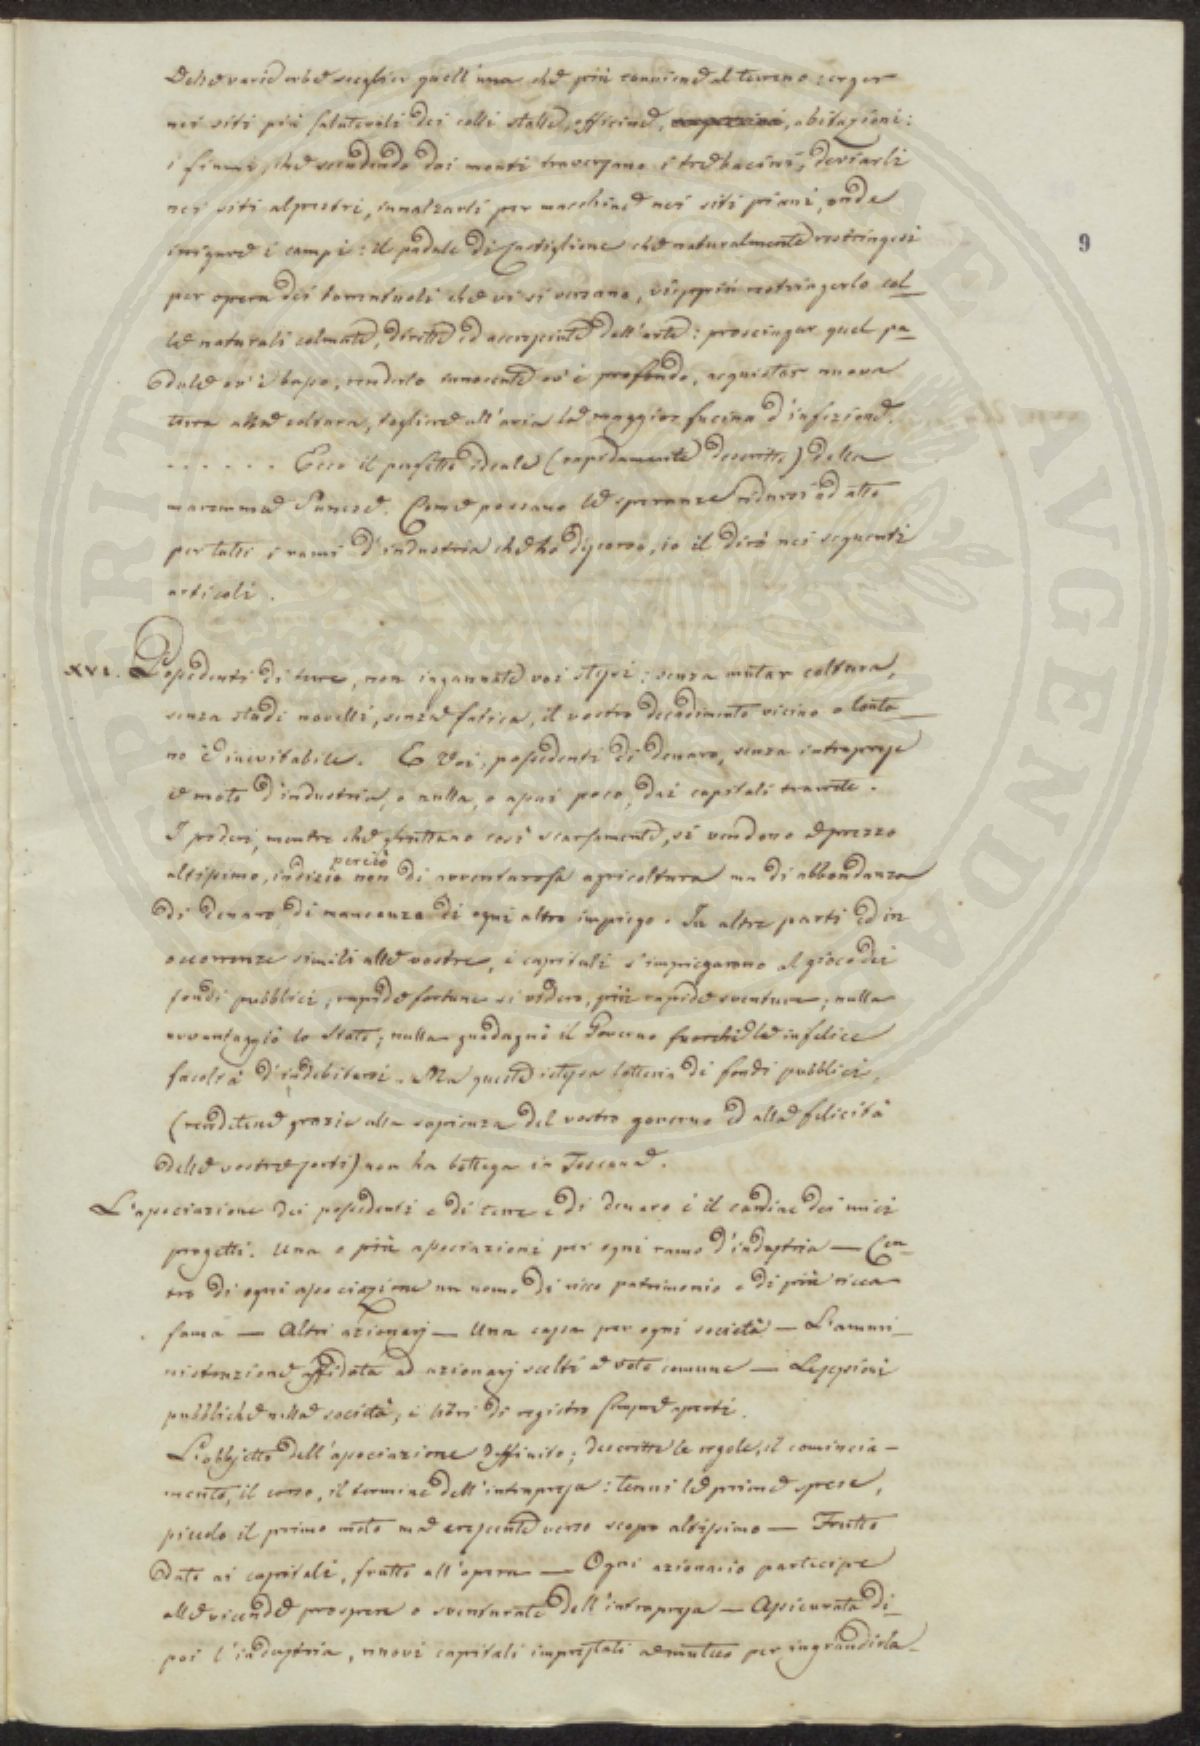 Delle varie erbe sceglier quell'una che più conviene al terreno: erger
nei siti più salutevoli dei colli stalle, officine, abitazioni:
i fiumi, che scendendo dai monti traversano i tre bacini, deviarli
nei siti alpestri, innalzarli per macchine nei siti piani, onde
irrigare i campi: il padule di Castiglione che naturalmente restringesi
per opera dei torrentuoli che vi si versano, vieppiù restringerlo col-
le naturali colmate, dirette ed accresciute dall'arte: prosciugar quel pa-
dule ov'è basso, renderlo innocente ov'è profondo, acquistar nuova
terra alla coltura, togliere all'aria la maggior fucina d'infezione.
. . . . . . Ecco il perfetto ideale (rapidamente descritto) della
maremma Sanese. Come possano le speranze ridursi ad atto
per tutti i rami d'industria che ho discorso, io il dirò nei seguenti
articoli.
XVI. Possedenti di terre, non ingannate voi stessi: senza mutar coltura,
senza studi novelli, senza fatica, il vostro decadimento vicino o lonta-
no è inevitabile. E Voi, possedenti di denaro, senza intraprese
e moto d'industria, o nulla, o assai poco, dai capitali traete.
I poderi, mentre che fruttano così scarsamente, si vendono a prezzo
perciò
altissimo, indizio non di avventurosa agricoltura ma di abbondanza
di denaro, di mancanza di ogni altro impiego. In altre parti ed in
occorrenze simili alle vostre, i capitali s'impiegarono al gioco dei
fondi pubblici; rapide fortune si videro, più rapide sventure; nulla
avvantaggiò lo Stato; nulla guadagnò il Governo fuorchè la infelice
facoltà d'indebitarsi. Ma questa istessa lotteria di fondi pubblici,
(rendetene grazie alla sapienza del vostro governo ed alla felicità
delle vostre sorti) non ha bottega in Toscana.
L'associazione dei possedenti e di terre e di denaro è il cardine dei miei
progetti. Una o più associazioni per ogni ramo d'industria — Cen-
tro di ogni associazione un uomo di ricco patrimonio e di più ricca
fama — Altri azionarj — Una cassa per ogni società — L'ammi-
nistrazione affidata ad azionarj scelti a voto comune — Le sessioni
pubbliche nella società, i libri di registro sempre aperti.
L'obbjetto dell'associazione deffinito; descritte le regole, il comincia-
mento, il corso, il termine dell'intrapresa: tenui le prime spese,
piccolo il primo moto ma crescente verso scopo altissimo — Frutto
dato ai capitali, frutto all'opera — Ogni azionario partecipe
alle vicende prospere o sventurate dell'intrapresa — Assicurata di-
poi l'industria, nuovi capitali imprestati a mutuo per ingrandirla.
9
SPERITE
AVGENDA